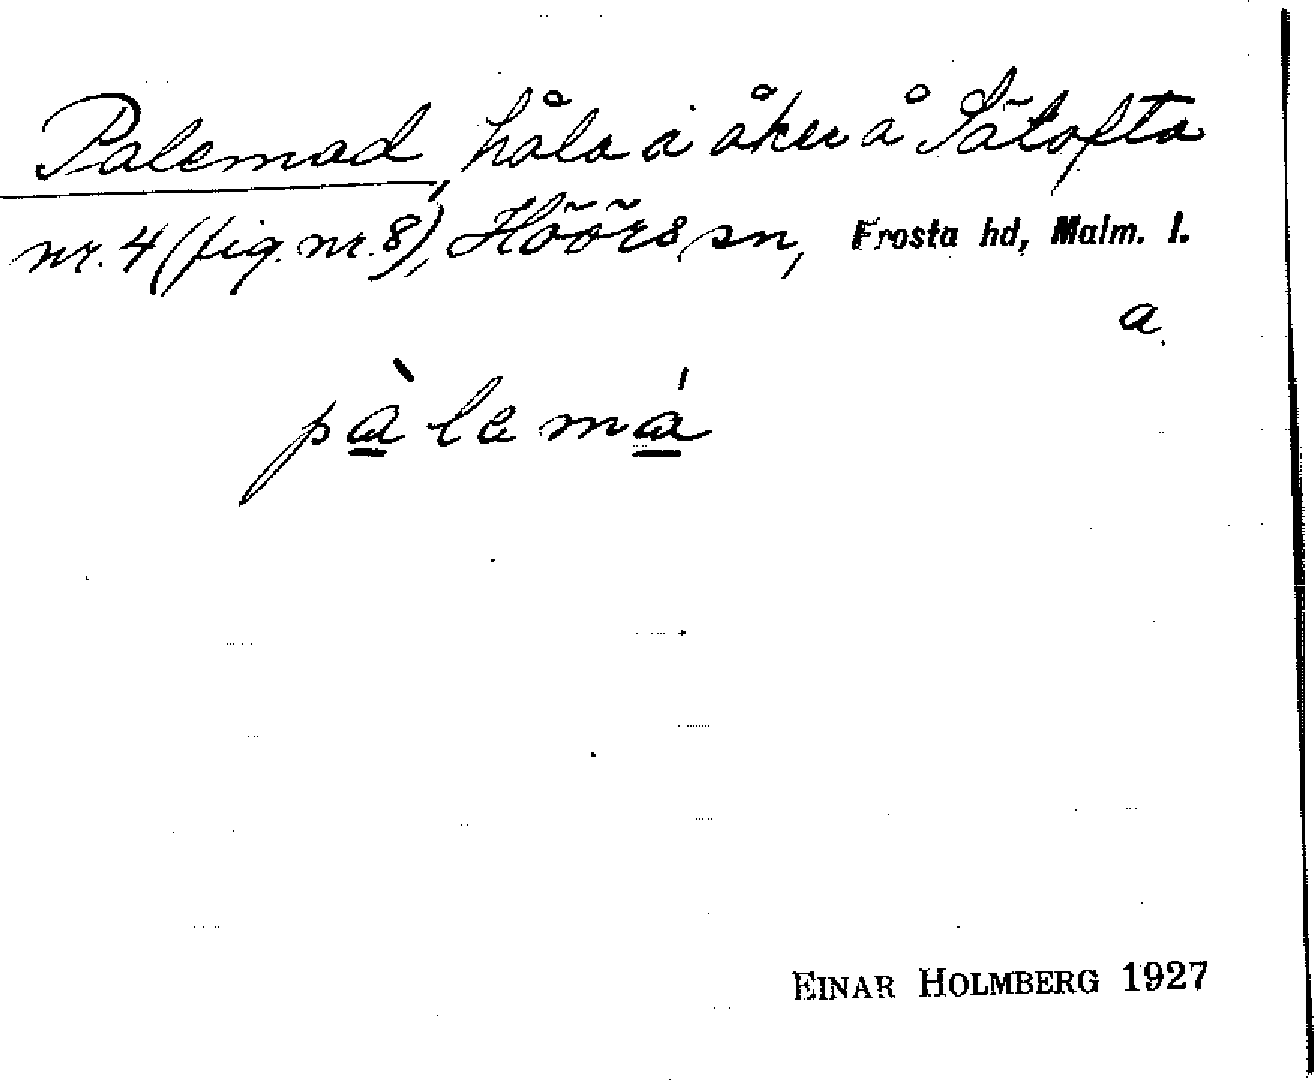 Palemad, håla i åker å Sätofta
nr. 4 (fig. nr. 8), Höörs sn, Frosta hd, Malm. l.
a.
pàlemá
EINAR HOLMBERG 1927